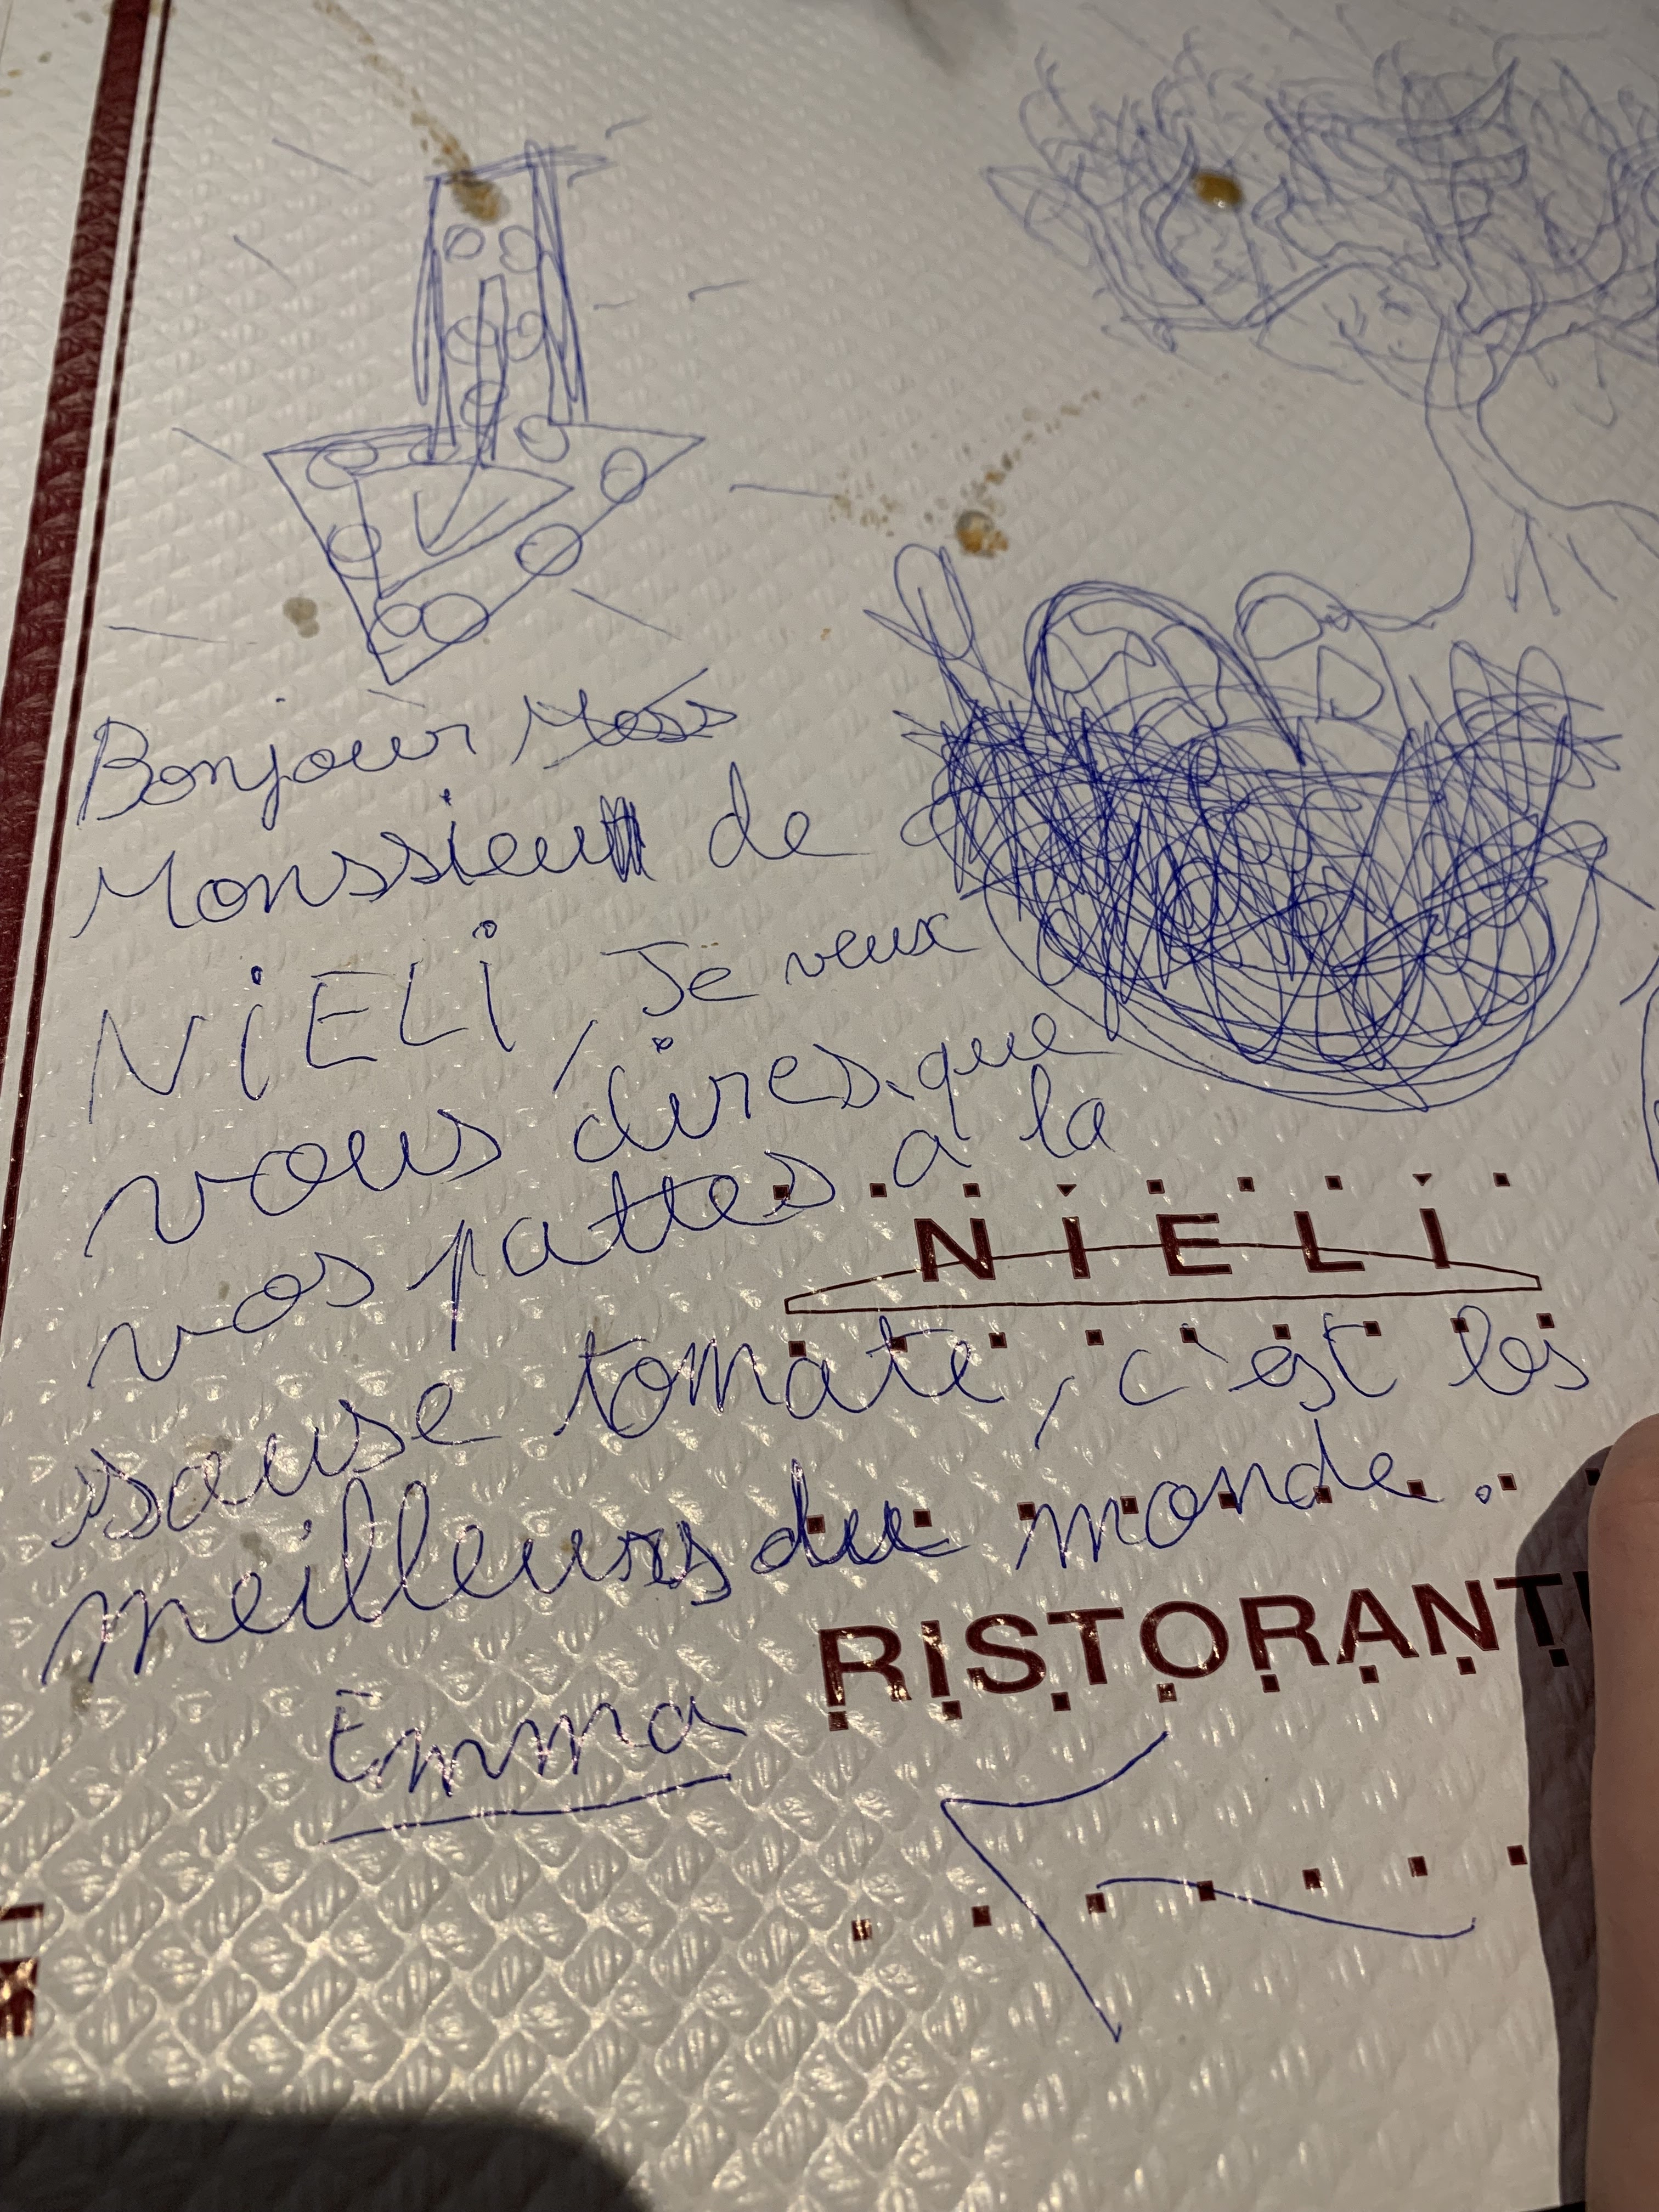 Bonjour Moss
Monssieu de
NiELi, Je veux
vous dires que
vos pattes a la
NIELI
sause tomate, c'est les
meilleurs du monde.
RISTORANT
Emma